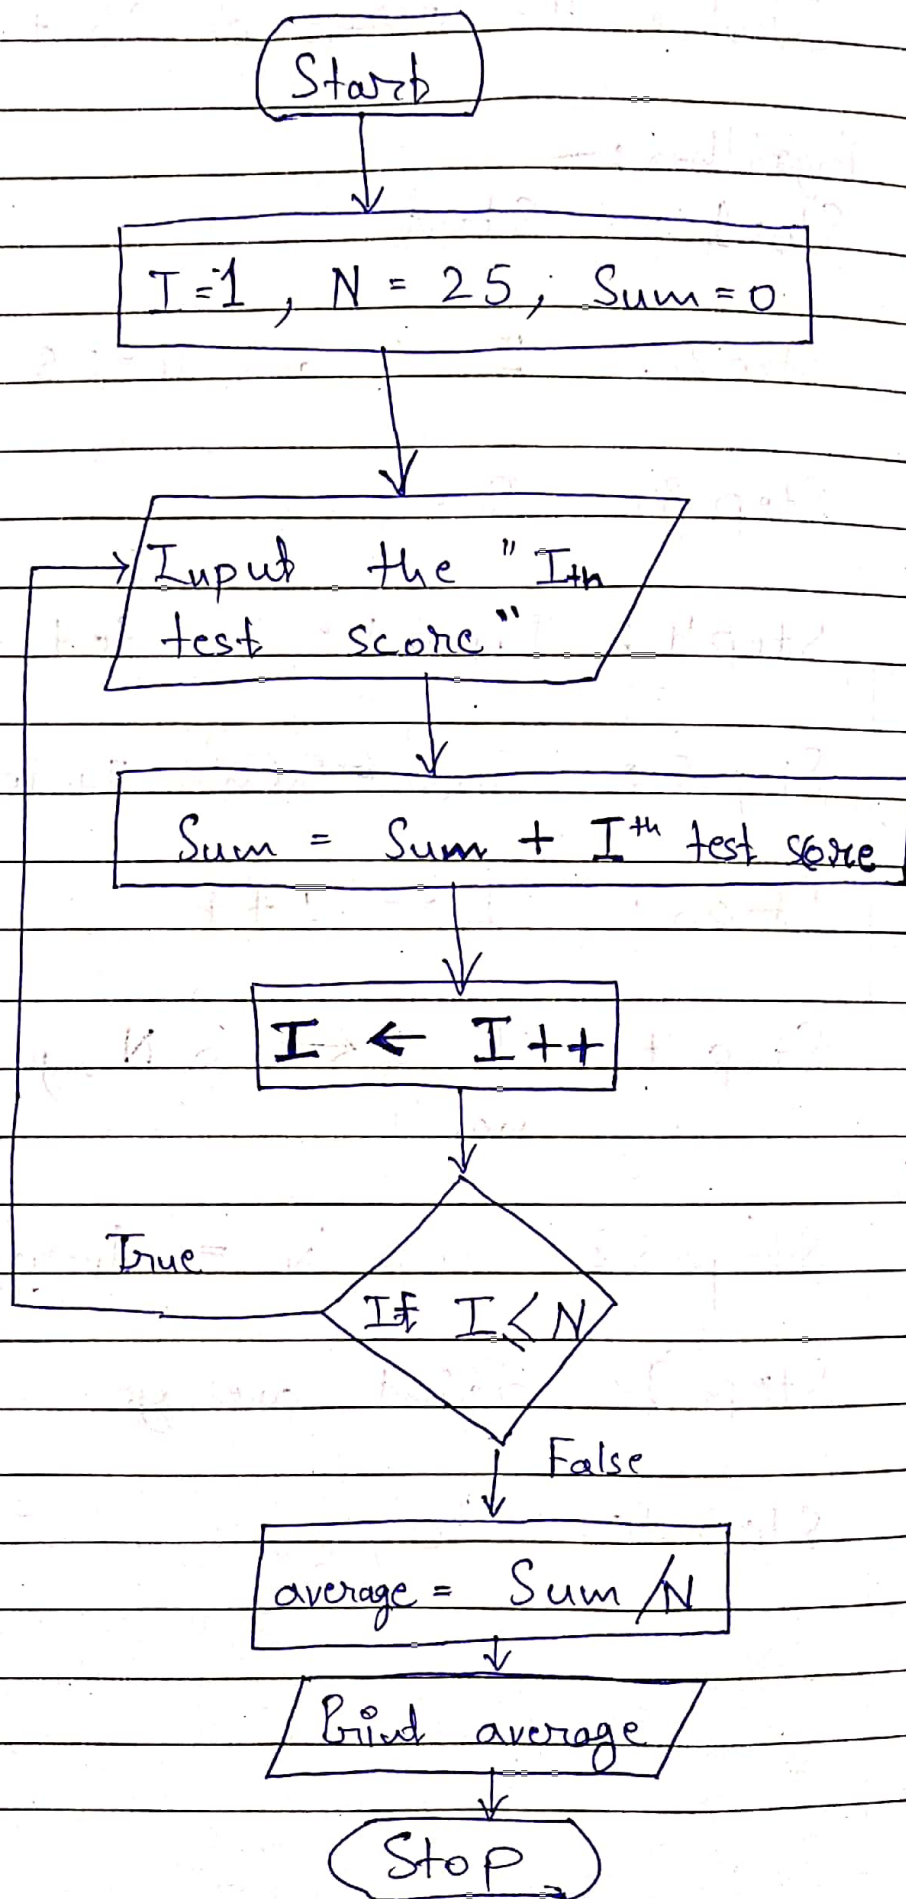 Start
I=1, N = 25, Sum=0
Input the "Ith
test score"
Sum = Sum + Ith test score
I ← I++
True
If I ≤ N
False
average = Sum/N
Print average
Stop